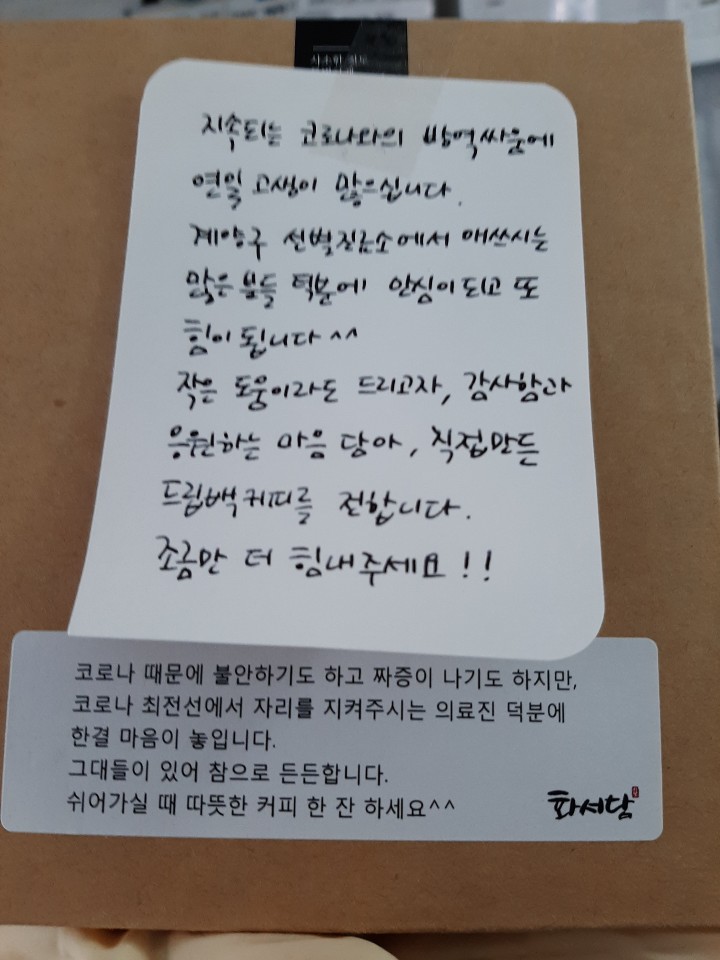 지속되는 코로나와의 방역싸움에
연일 고생이 많으십니다.
계양구 선별진료소에서 애쓰시는
많은 분들 덕분에 안심이 되고 또
힘이 됩니다 ^^
작은 도움이라도 드리고자, 감사함과
응원하는 마음 담아, 직접만든
드립백커피를 전합니다.
조금만 더 힘내주세요!!
코로나 때문에 불안하기도 하고 짜증이 나기도 하지만,
코로나 최전선에서 자리를 지켜주시는 의료진 덕분에
한결 마음이 놓입니다.
그대들이 있어 참으로 든든합니다.
쉬어가실 때 따뜻한 커피 한 잔 하세요^^
화서담